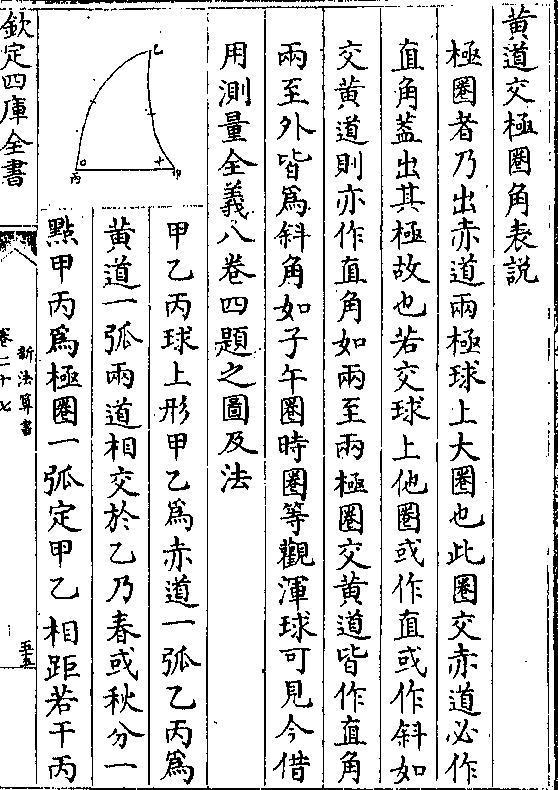 黄道交極圈角表説
極圈者乃出赤道兩極球上大圈也此圈交赤道必作
直角葢出其極故也若交球上他圈或作直或作斜如
交黄道則亦作直角如兩至兩極圈交黄道皆作直角
兩至外皆爲斜角如子午圈時圈等觀渾球可見今借
用測量全義八卷四題之圖及法
乙
丙
甲
甲乙丙球上形甲乙爲赤道一弧乙丙爲
黄道一弧兩道相交於乙乃春或秋分一
點甲丙爲極圈一弧定甲乙相距若干丙
欽定四庫全書
新法算書
卷二十七